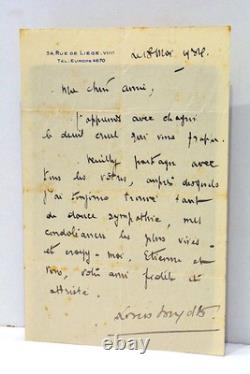 34, RUE DE LIÉGE, VIIIE
TÉL: EUROPE 4670
Ma chère amie,
J'apprends avec chagrin
le deuil cruel qui vous frappe.
Veuillez partager avec
tous les vôtres, auprès desquels
j'ai toujours trouvé tant
de douce sympathie, mes
condoléances les plus vives
et croyez-moi, Etienne et
vous, votre ami fidèle et
attristé.